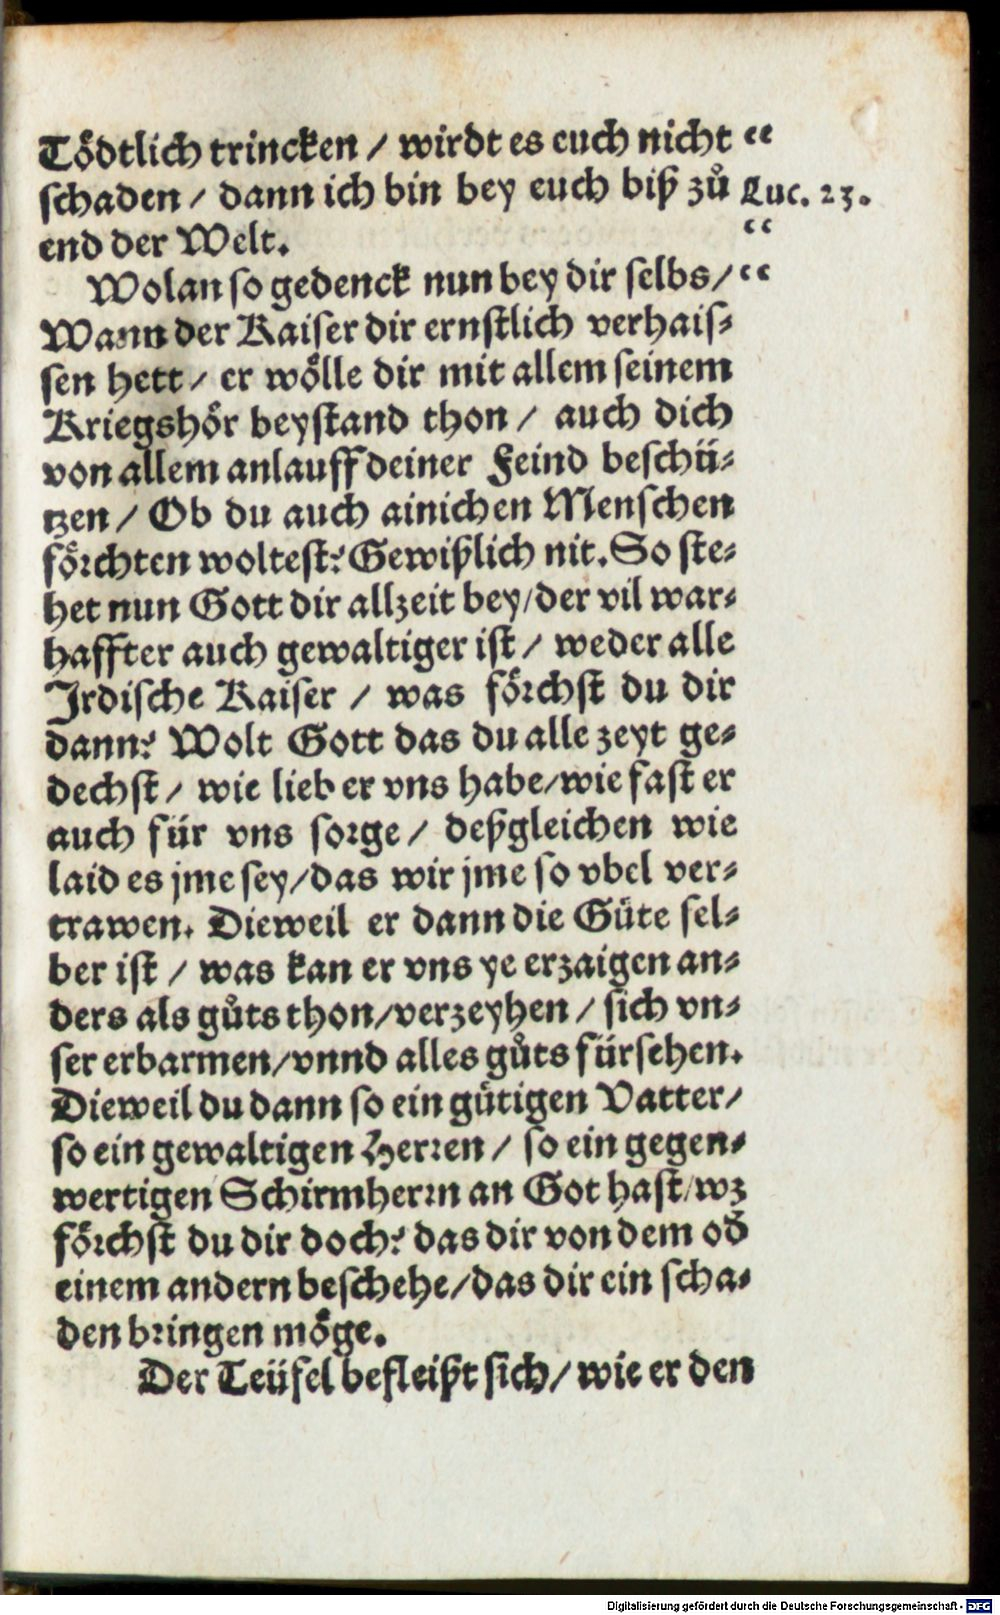 Toͤdtlich trincken / wirdt es euch nicht “
schaden / dann ich bin bey euch biß zuͦ Luc. 23.
end der Welt. “
Wolan so gedenck nun bey dir selbs / “
Wann der Kaiser dir ernstlich verhais⸗
sen hett / er woͤlle dir mit allem seinem
Kriegshoͤr beystand thon / auch dich
von allem anlauff deiner Feind beschü⸗
tzen / Ob du auch ainichen Menschen
foͤrchten woltest? Gewißlich nit. So ste⸗
het nun Gott dir allzeit bey / der vil war⸗
haffter auch gewaltiger ist / weder alle
Irdische Kaiser / was foͤrchst du dir
dann? Wolt Gott das du alle zeyt ge⸗
dechst / wie lieb er vns habe / wie fast er
auch für vns sorge / deßgleichen wie
laid es jme sey / das wir jme so vbel ver⸗
trawen. Dieweil er dann die Guͤte sel⸗
ber ist / was kan er vns ye erzaigen an⸗
ders als guͦts thon / verzeyhen / sich vn⸗
ser erbarmen / vnnd alles guͦts fürsehen.
Dieweil du dann so ein guͤtigen Vatter /
so ein gewaltigen Herren / so ein gegen⸗
wertigen Schirmherrn an Got hast / wz
foͤrchst du dir doch? das dir von dem od̕
einem andern beschehe / das dir ein scha⸗
den bringen moͤge.
Der Teüfel befleißt sich / wie er den
Digitalisierung gefördert durch die Deutsche Forschungsgemeinschaft - DFG